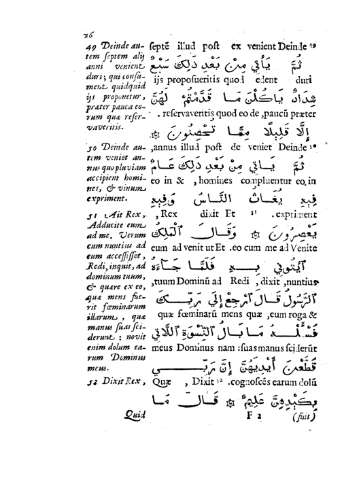 26
49 Deinde au-
tem septem alij
anni venient
duri; qui consu-
ment quidquid
ijs proponetur,
præter pauca eo-
rum quæ reser-
vaveritis.
50 Deinde au-
tem veniet an-
nus quo pluviam
accipient homi-
nes, & vinum
expriment.
51 Ait Rex,
Adducite eum
ad me. Verum
cum nuntius ad
eum accessisset,
Redi, inquit, ad
dominum tuum,
& quære ex eo,
quæ mens fue-
rit fœminarum
illarum, quæ
manus suas sci-
derunt: novit
enim dolum ea-
rum Dominus
meus.
52 Dixit Rex,
Quid
septē illud post ex venient Deinde
ثُمَّ يَأْتِي مِنْ بَعْدِ ذَلِكَ سَبْعٌ
ijs proposueritis quod edent duri
شِدَادٌ يَأْكُلْنَ مَا قَدَّمْتُمْ لَهُنَّ
.reservaventis quod eo de, paucū præter
إِلَّا قَلِيلًا مِمَّا تُحْصِنُونَ
,annus illud post de veniet Deinde
ثُمَّ يَأْتِي مِنْ بَعْدِ ذَلِكَ عَامٌ
eo in & , homines compluentur eo, in
فِيهِ يُغَاثُ النَّاسُ وَفِيهِ
, Rex dixit Et .expriment
يَعْصِرُونَ وَقَالَ ٱلْمَلِكُ
eum ad venit ut Et .eo cum me ad Venite
ٱيتُونِي بِهِ فَلَمَّا جَاءَهُ
,tuum Dominū ad Redi ,dixit ,nuntius
ٱلرَّسُولُ قَالَ ٱرْجِعْ إِلَى رَبِّكَ
quæ fœminarū mens quæ ,eum roga &
فَسْـَٔلْهُ مَا بَالُ ٱلنِّسْوَةِ ٱللَّاتِي
meus Dominus nam :suas manus sciderūt
قَطَّعْنَ أَيْدِيَهُنَّ إِنَّ رَبِّي
Quæ , Dixit .cognoscēs earum dolū
بِكَيْدِهِنَّ عَلِيمٌ قَالَ مَا
F 2 (fuit)